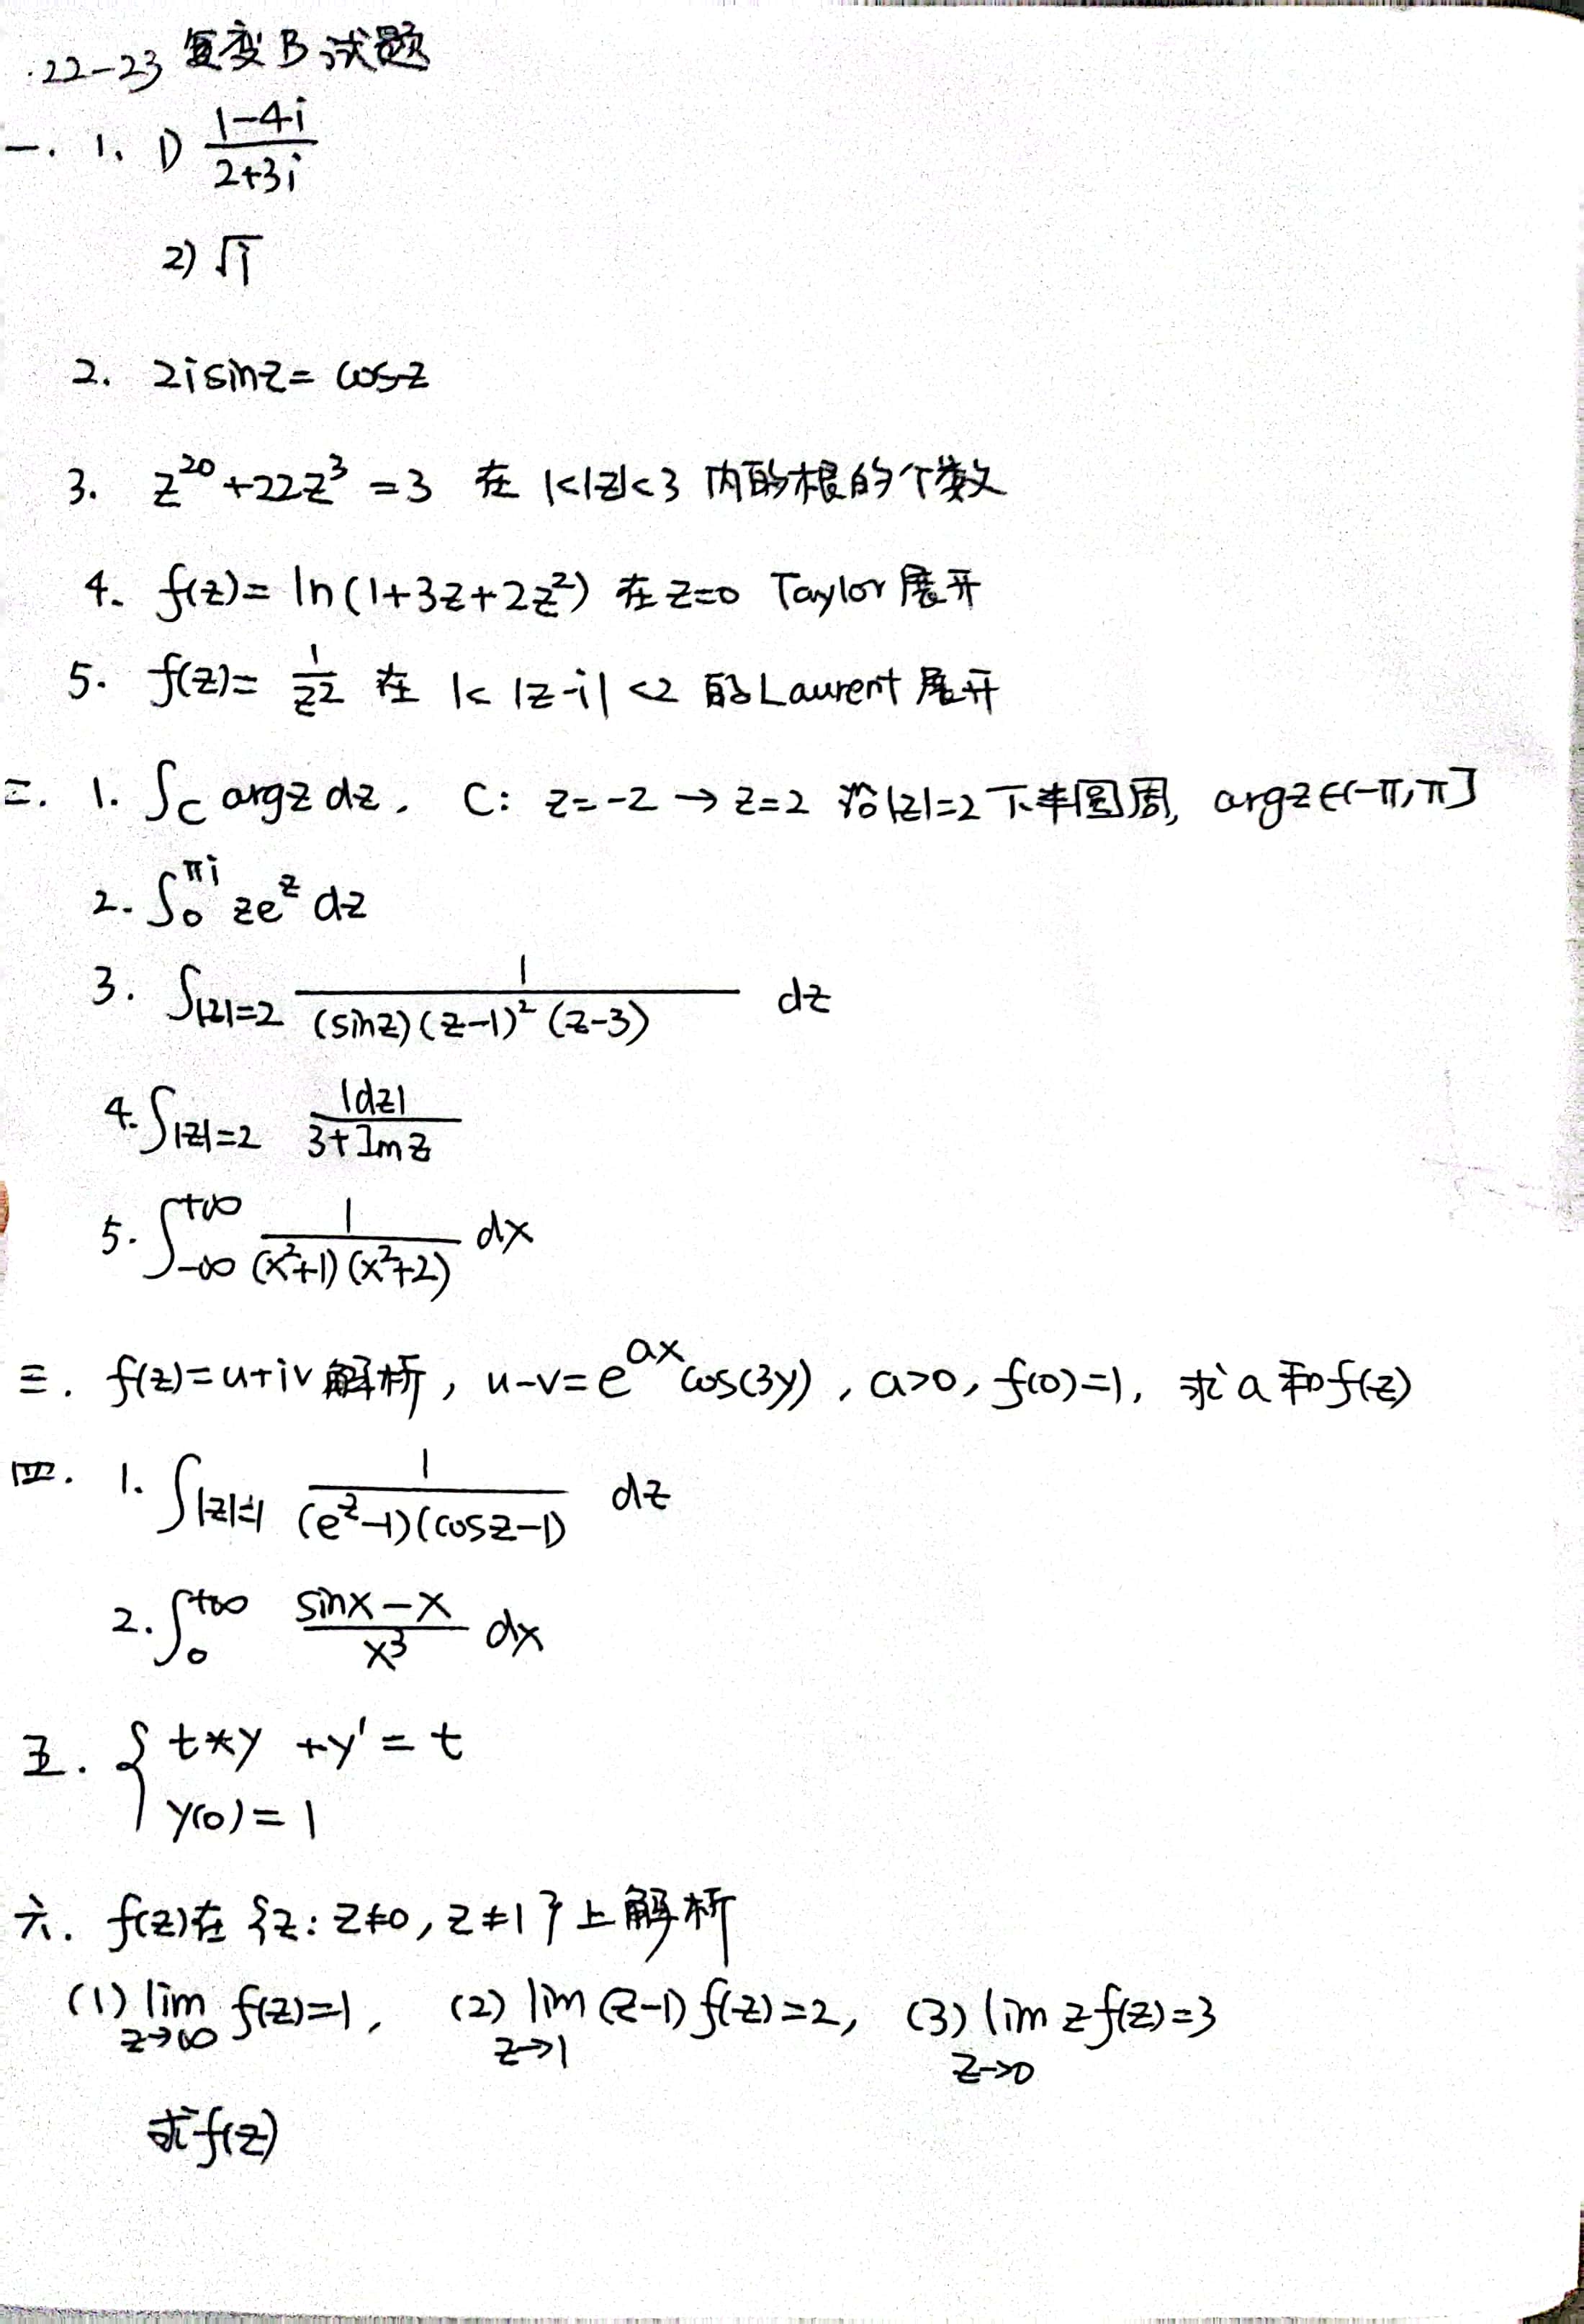 22-23 复变B试题
一. 1. 1) \frac{1-4i}{2+3i}
2) √i
2. 2i sinz = cosz
3. z^{20}+22z^3=3 在 1<|z|<3 内的根的个数
4. f(z)= ln(1+3z+2z^2) 在 z=0 Taylor 展开
5. f(z)= \frac{1}{z^2} 在 1<|z-i|<2 的 Laurent 展开
二. 1. ∫_C argz dz, C: z=-2 → z=2 沿|z|=2 下半圆周, argz∈(-π,π]
2. ∫_0^{πi} ze^z dz
3. ∫_{|z|=2} \frac{1}{(sinz)(z-1)^2(z-3)} dz
4. ∫_{|z|=2} \frac{|dz|}{3+Imz}
5. ∫_{-∞}^{+∞} \frac{1}{(x^2+1)(x^2+2)} dx
三. f(z)=u+iv 解析, u-v=e^{ax}cos(3y), a>0, f(0)=1, 求 a 和 f(z)
四. 1. ∫_{|z|=1} \frac{1}{(e^z-1)(cosz-1)} dz
2. ∫_0^{+∞} \frac{sinx-x}{x^3} dx
五. { t*y + y' = t
y(0)=1
六. f(z)在{z: z≠0, z≠1}上解析
(1) lim_{z→∞} f(z)=1, (2) lim_{z→1} (z-1)f(z)=2, (3) lim_{z→0} zf(z)=3
求f(z)